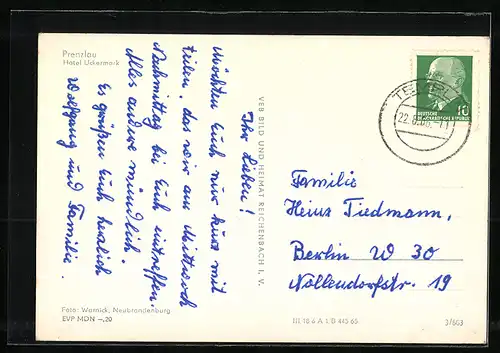 Prenzlau
Hotel Uckermark
Ihr Lieben!
Möchten Euch nur kurz mit
teilen, das wir am Mittwoch
Nachmittag bei Euch eintreffen.
Alles andere mündlich.
Es grüßen Euch herzlich
Wolfgang und Familie.
Foto: Warnick, Neubrandenburg
EVP MDN –,20
VEB BILD UND HEIMAT REICHENBACH I. V.
III 18 6 A 1/B 445 65
3/603
10
DEUTSCHE
DEMOKRATISCHE REPUBLIK
Familie
Heinz Tiedmann,
Berlin W 30
Nollendorfstr. 19